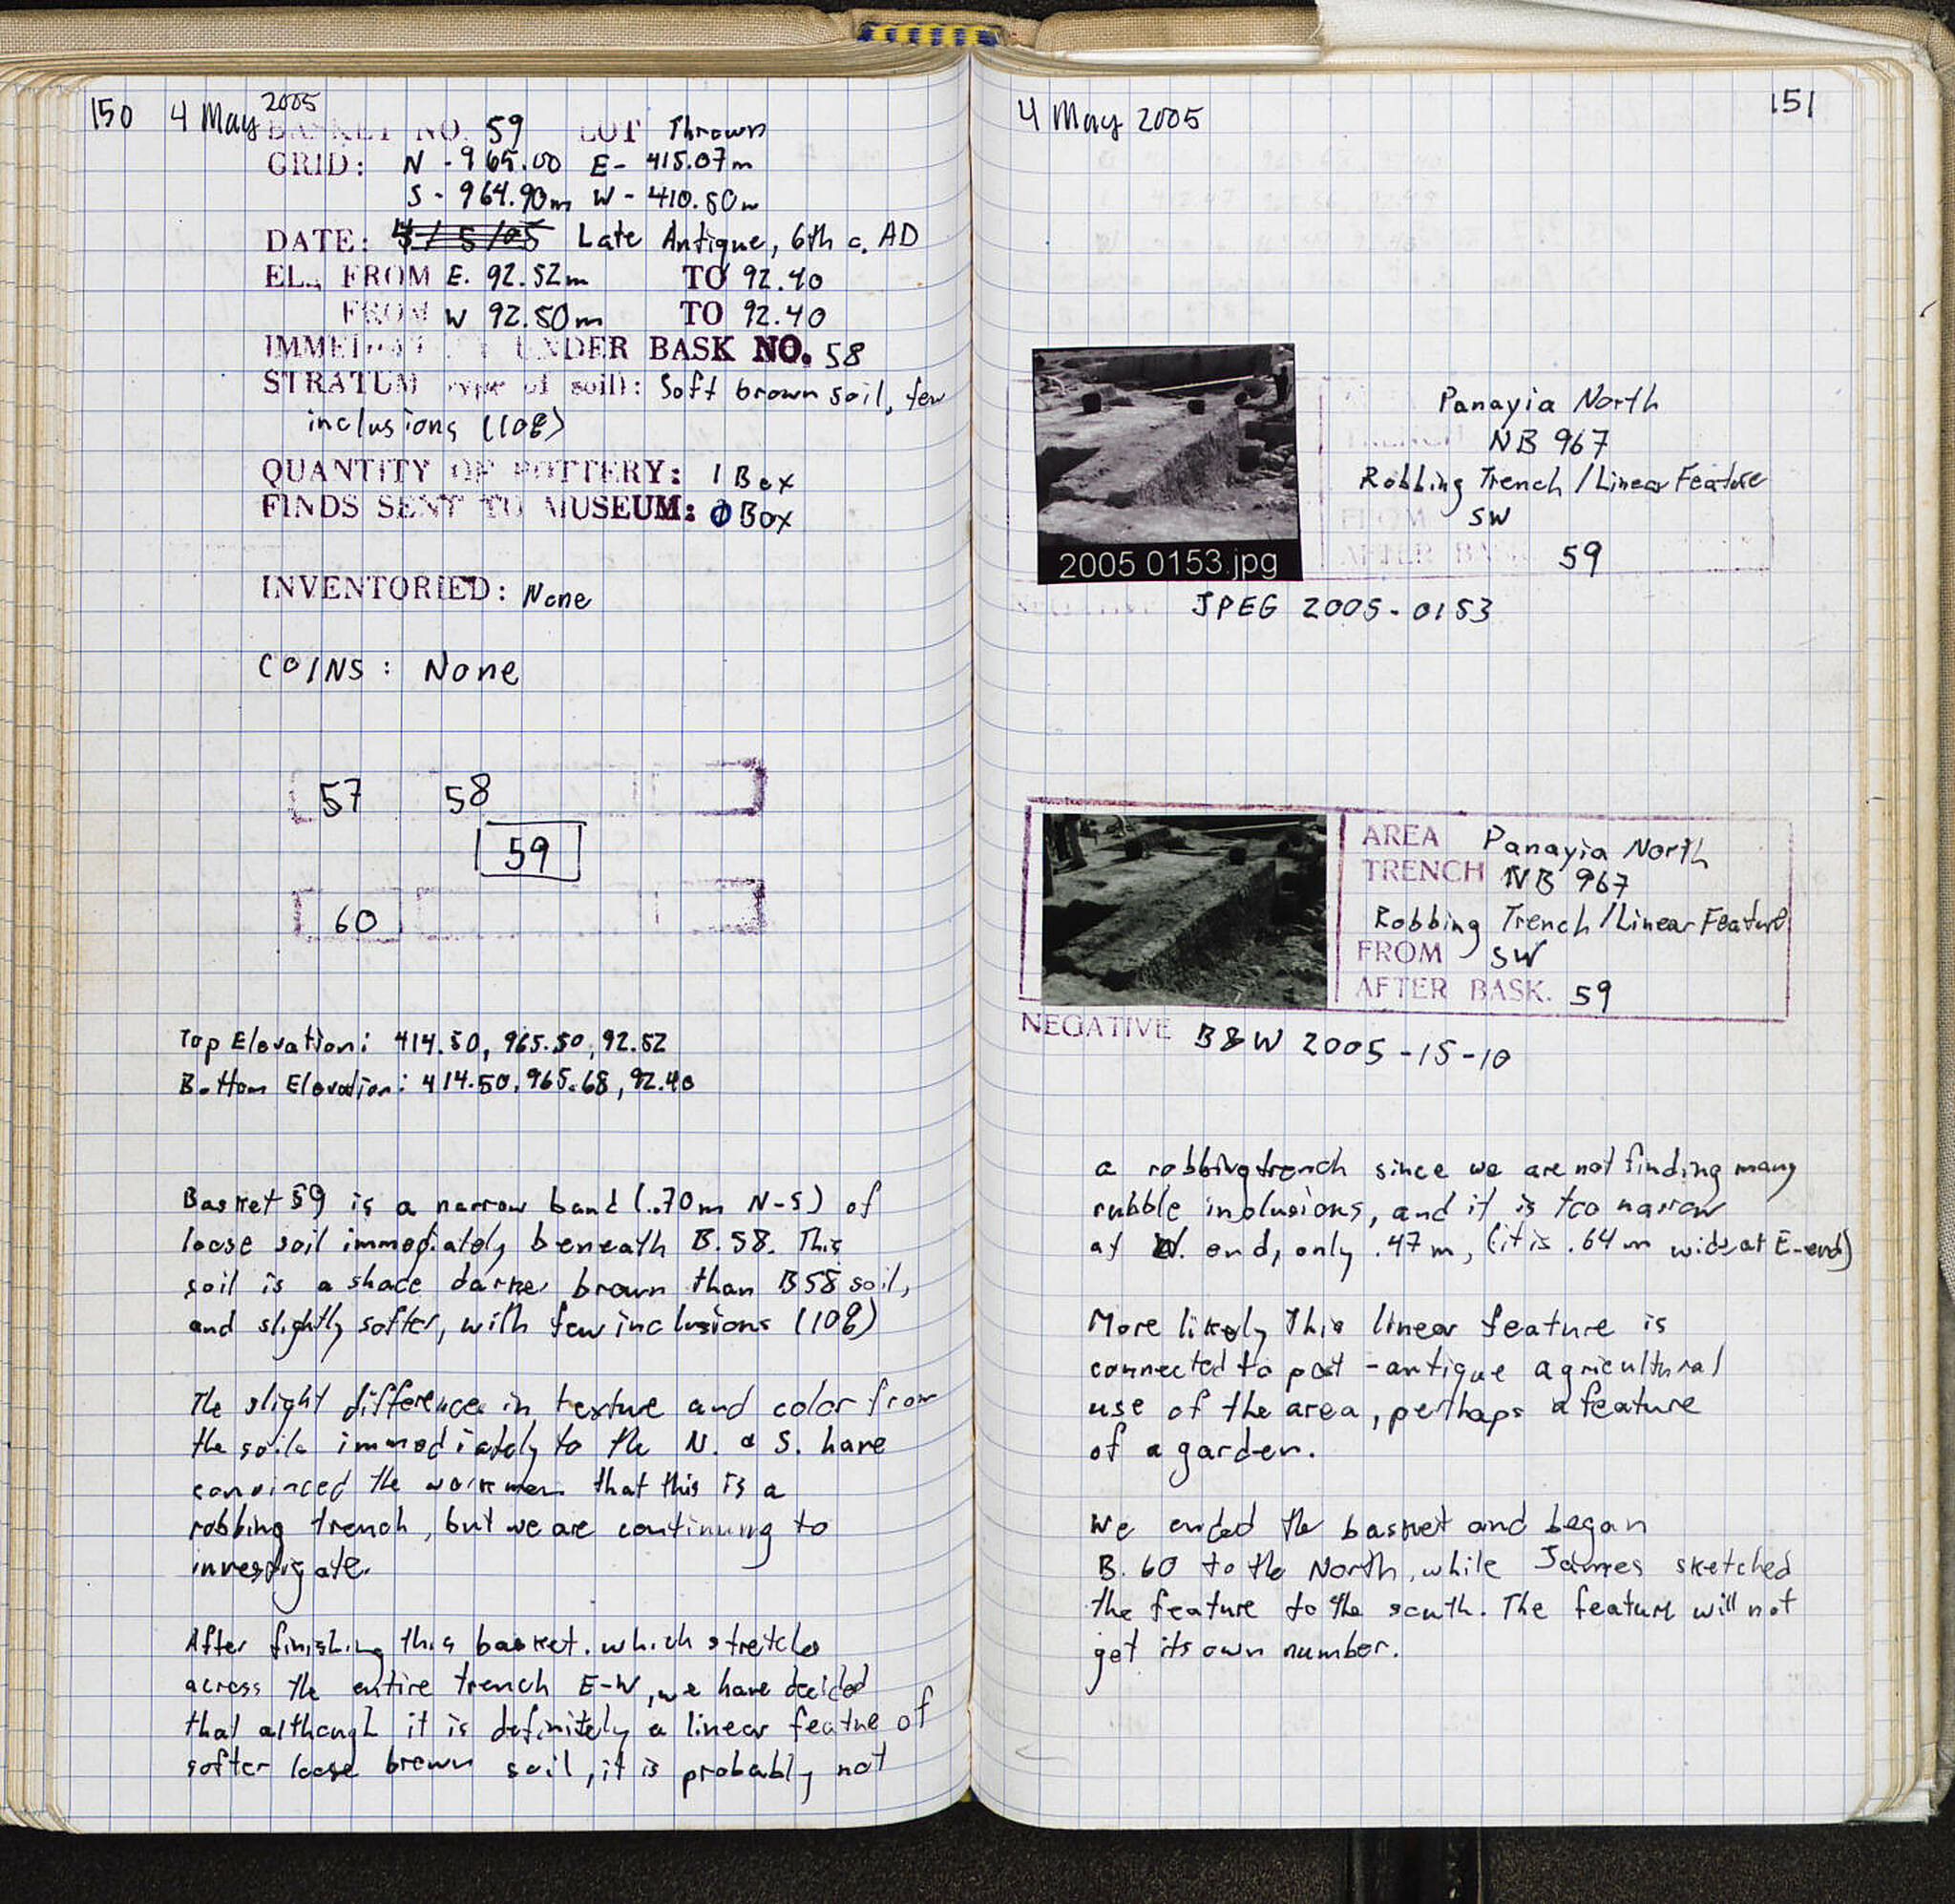 150 4 May 2005
BASKET NO. 59 LOT Thrown
GRID: N - 965.00 E- 415.07m
S - 964.90m W - 410.50m
DATE: 4/5/05 Late Antique, 6th c. AD
EL., FROM E. 92.52m TO 92.40
FROM W 92.50m TO 92.40
IMMEDIATELY UNDER BASK NO. 58
STRATUM (type of soil): Soft brown soil, few
inclusions (10%)
QUANTITY OF POTTERY: 1 Box
FINDS SENT TO MUSEUM: 0 Box
INVENTORIED: None
COINS: None
57 58
59
60
Top Elevation: 414.50, 965.50, 92.52
Bottom Elevation: 414.50, 965.68, 92.40
Basket 59 is a narrow band (.70m N-S) of
loose soil immediately beneath B.58. This
soil is a shade darker brown than B58 soil,
and slightly softer, with few inclusions (10%)
The slight difference in texture and color from
the soils immediately to the N. & S. have
convinced the workmen that this is a
robbing trench, but we are continuing to
investigate.
After finishing this basket, which stretches
across the entire trench E-W, we have decided
that although it is definitely a linear feature of
softer loose brown soil, it is probably not
4 May 2005 151
Panayia North
TRENCH NB 967
Robbing Trench / Linear Feature
FROM SW
AFTER BASK. 59
2005 0153.jpg
NEGATIVE JPEG 2005-0153
AREA Panayia North
TRENCH NB 967
Robbing Trench / Linear Feature
FROM SW
AFTER BASK. 59
NEGATIVE B&W 2005-15-10
a robbing trench since we are not finding many
rubble inclusions, and it is too narrow
at W. end, only .47m, (it is .64m wide at E-end)
More likely this linear feature is
connected to post-antique agricultural
use of the area, perhaps a feature
of a garden.
We ended the basket and began
B. 60 to the North, while James sketched
the feature to the south. The feature will not
get its own number.